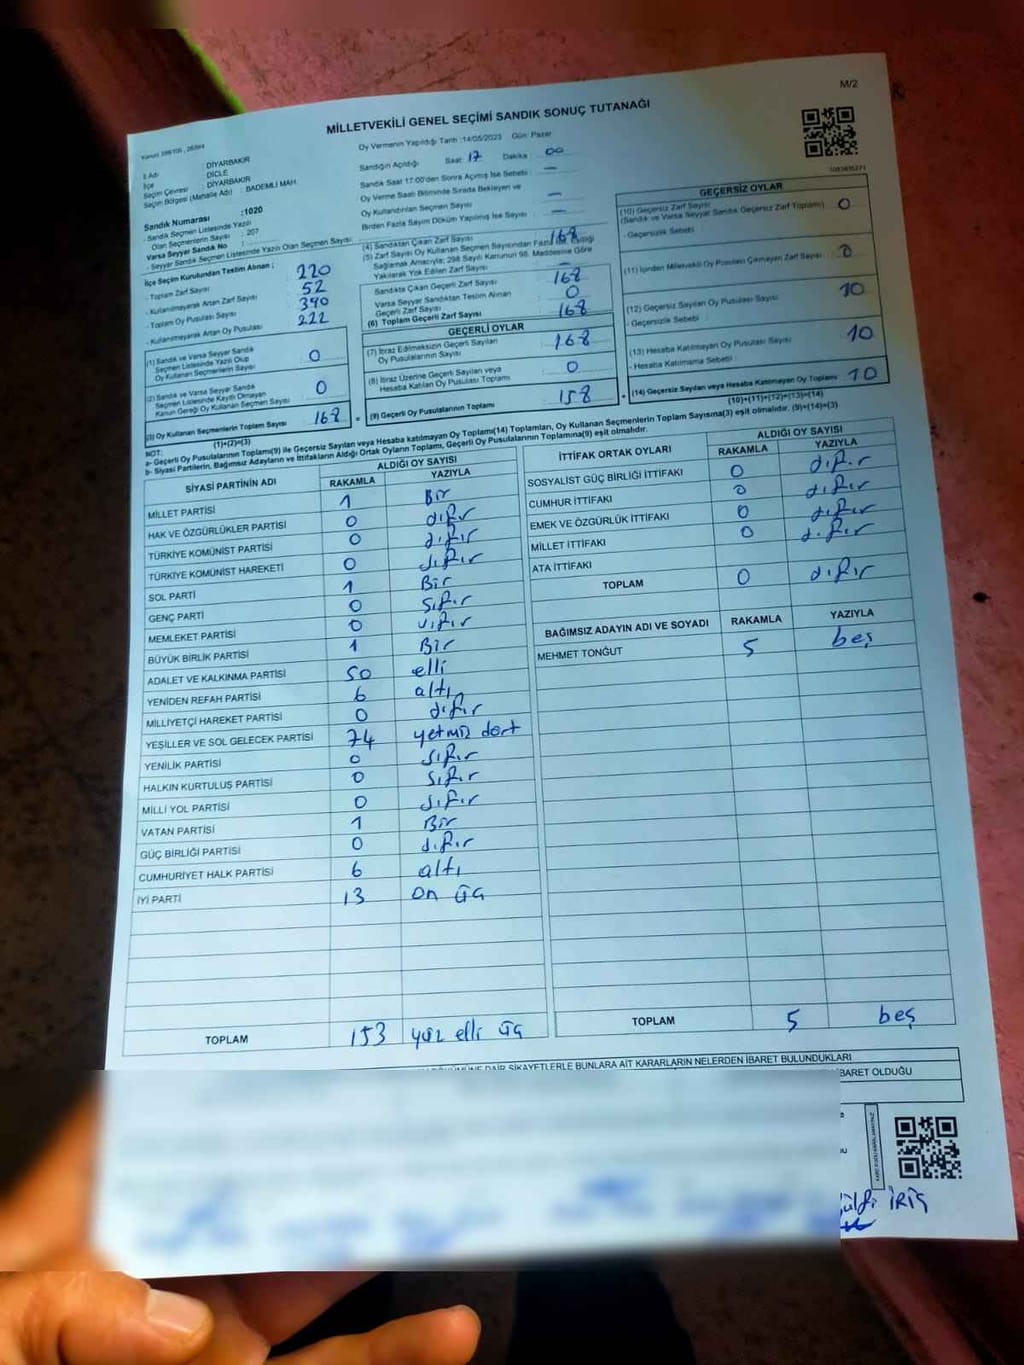 M/2
MİLLETVEKİLİ GENEL SEÇİMİ SANDIK SONUÇ TUTANAĞI
İl Adı : DİYARBAKIR
İlçe : DİCLE
Seçim Çevresi : DİYARBAKIR
Seçim Bölgesi (Mahalle Adı) : BADEMLİ MAH.
Sandık Numarası :1020
- Sandık Seçmen Listesinde Yazılı
Olan Seçmenlerin Sayısı : 207
Varsa Seyyar Sandık No :
- Seyyar Sandık Seçmen Listesinde Yazılı Olan Seçmen Sayısı:
Oy Vermenin Yapıldığı Tarih :14/05/2023 Gün: Pazar
Sandığın Açıldığı Saat: 17 Dakika : 00
Sandık Saat 17:00'den Sonra Açılmış İse Sebebi : —
Oy Verme Saati Bitiminde Sırada Bekleyen ve
Oy Kullandırılan Seçmen Sayısı —
Birden Fazla Sayım Döküm Yapılmış İse Sayısı : —
İlçe Seçim Kurulundan Teslim Alınan :
- Toplam Zarf Sayısı 220
- Kullanılmayarak Artan Zarf Sayısı 52
- Toplam Oy Pusulası Sayısı 390
- Kullanılmayarak Artan Oy Pusulası 222
(1) Sandık ve Varsa Seyyar Sandık
Seçmen Listesinde Yazılı Olup
Oy Kullanan Seçmenlerin Sayısı 0
(2) Sandık ve Varsa Seyyar Sandık
Seçmen Listesinde Kayıtlı Olmayan
Kanun Gereği Oy Kullanan Seçmen Sayısı 0
(3) Oy Kullanan Seçmenlerin Toplam Sayısı 168
(1)+(2)=(3)
(4) Sandıktan Çıkan Zarf Sayısı 168
(5) Zarf Sayısı Oy Kullanan Seçmen Sayısından Fazla İse Eşitliği
Sağlamak Amacıyla; 298 Sayılı Kanunun 98. Maddesine Göre
Yakılarak Yok Edilen Zarf Sayısı —
Sandıkta Çıkan Geçerli Zarf Sayısı 168
Varsa Seyyar Sandıktan Teslim Alınan
Geçerli Zarf Sayısı 0
(6) Toplam Geçerli Zarf Sayısı 168
GEÇERLİ OYLAR
(7) İtiraz Edilmeksizin Geçerli Sayılan
Oy Pusulalarının Sayısı 168
(8) İtiraz Üzerine Geçerli Sayılan veya
Hesaba Katılan Oy Pusulası Toplamı 0
(9) Geçerli Oy Pusulalarının Toplamı 158
GEÇERSİZ OYLAR
(10) Geçersiz Zarf Sayısı
(Sandık ve Varsa Seyyar Sandık Geçersiz Zarf Toplamı) 0
- Geçersizlik Sebebi :
(11) İçinden Milletvekili Oy Pusulası Çıkmayan Zarf Sayısı 0
(12) Geçersiz Sayılan Oy Pusulası Sayısı 10
- Geçersizlik Sebebi :
(13) Hesaba Katılmayan Oy Pusulası Sayısı 10
- Hesaba Katılmama Sebebi :
(14) Geçersiz Sayılan veya Hesaba Katılmayan Oy Toplamı 10
(10)+(11)+(12)+(13)=(14)
NOT:
a- Geçerli Oy Pusulalarının Toplamı(9) ile Geçersiz Sayılan veya Hesaba katılmayan Oy Toplamı(14) Toplamları, Oy Kullanan Seçmenlerin Toplam Sayısına(3) eşit olmalıdır. (9)+(14)=(3)
b- Siyasi Partilerin, Bağımsız Adayların ve İttifakların Aldığı Ortak Oyların Toplamı, Geçerli Oy Pusulalarının Toplamına(9) eşit olmalıdır.
SİYASİ PARTİNİN ADI ALDIĞI OY SAYISI
RAKAMLA YAZIYLA
MİLLET PARTİSİ 1 Bir
HAK VE ÖZGÜRLÜKLER PARTİSİ 0 sıfır
TÜRKİYE KOMÜNİST PARTİSİ 0 sıfır
TÜRKİYE KOMÜNİST HAREKETİ 0 sıfır
SOL PARTİ 1 Bir
GENÇ PARTİ 0 sıfır
MEMLEKET PARTİSİ 0 sıfır
BÜYÜK BİRLİK PARTİSİ 1 Bir
ADALET VE KALKINMA PARTİSİ 50 elli
YENİDEN REFAH PARTİSİ 6 altı
MİLLİYETÇİ HAREKET PARTİSİ 0 sıfır
YEŞİLLER VE SOL GELECEK PARTİSİ 74 yetmiş dört
YENİLİK PARTİSİ 0 sıfır
HALKIN KURTULUŞ PARTİSİ 0 sıfır
MİLLİ YOL PARTİSİ 0 sıfır
VATAN PARTİSİ 1 Bir
GÜÇ BİRLİĞİ PARTİSİ 0 sıfır
CUMHURİYET HALK PARTİSİ 6 altı
İYİ PARTİ 13 on üç
TOPLAM 153 yüz elli üç
İTTİFAK ORTAK OYLARI ALDIĞI OY SAYISI
RAKAMLA YAZIYLA
SOSYALİST GÜÇ BİRLİĞİ İTTİFAKI 0 sıfır
CUMHUR İTTİFAKI 0 sıfır
EMEK VE ÖZGÜRLÜK İTTİFAKI 0 sıfır
MİLLET İTTİFAKI 0 sıfır
ATA İTTİFAKI
TOPLAM 0 sıfır
BAĞIMSIZ ADAYIN ADI VE SOYADI RAKAMLA YAZIYLA
MEHMET TONĞUT 5 beş
TOPLAM 5 beş
DAİR ŞİKAYETLERLE BUNLARA AİT KARARLARIN NELERDEN İBARET BULUNDUKLARI
İBARET OLDUĞU
İRİŞ